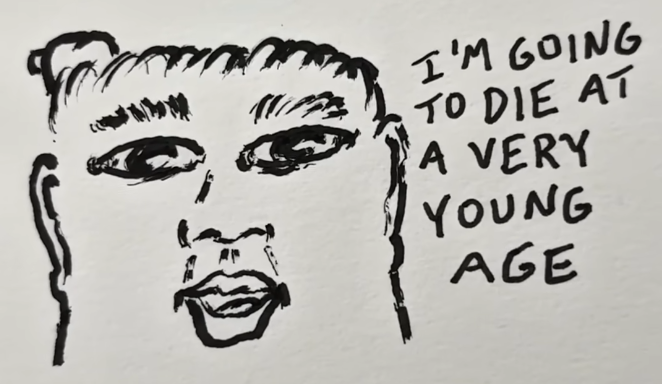 I'M GOING
TO DIE AT
A VERY
YOUNG
AGE